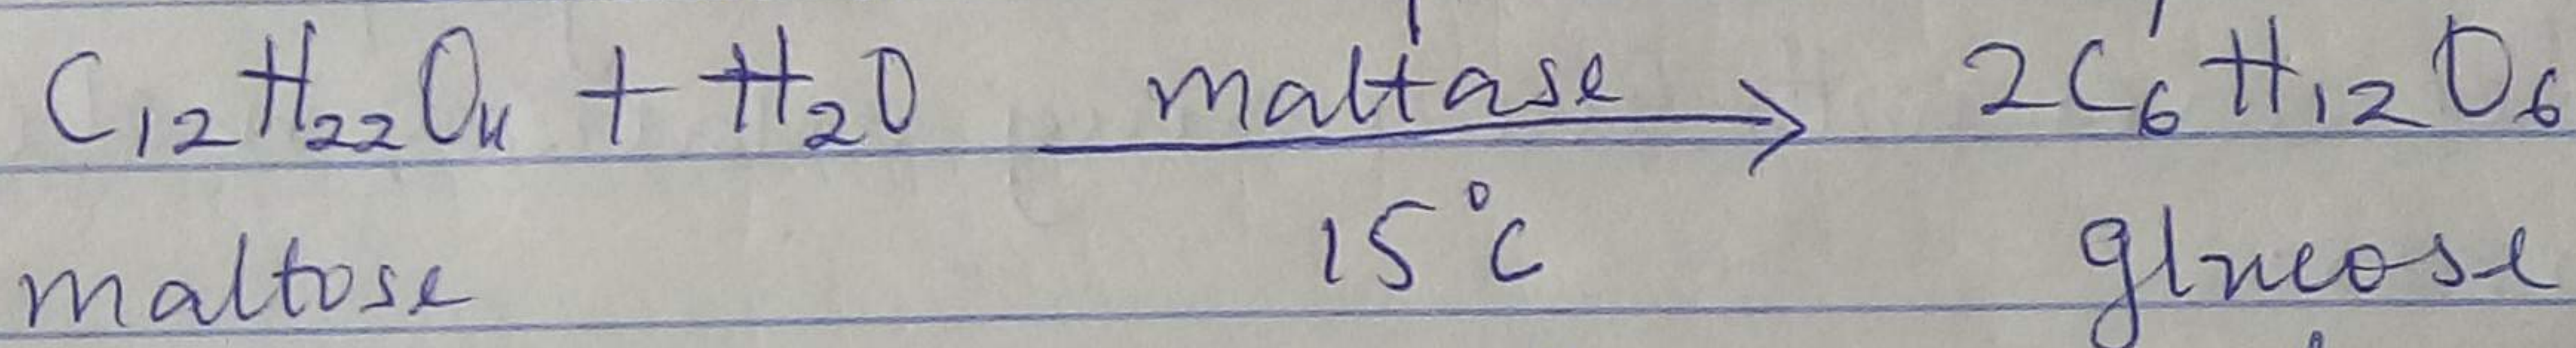 C₁₂H₂₂O₁₁ + H₂O maltase → 2C₆H₁₂O₆
maltose 15°C glucose